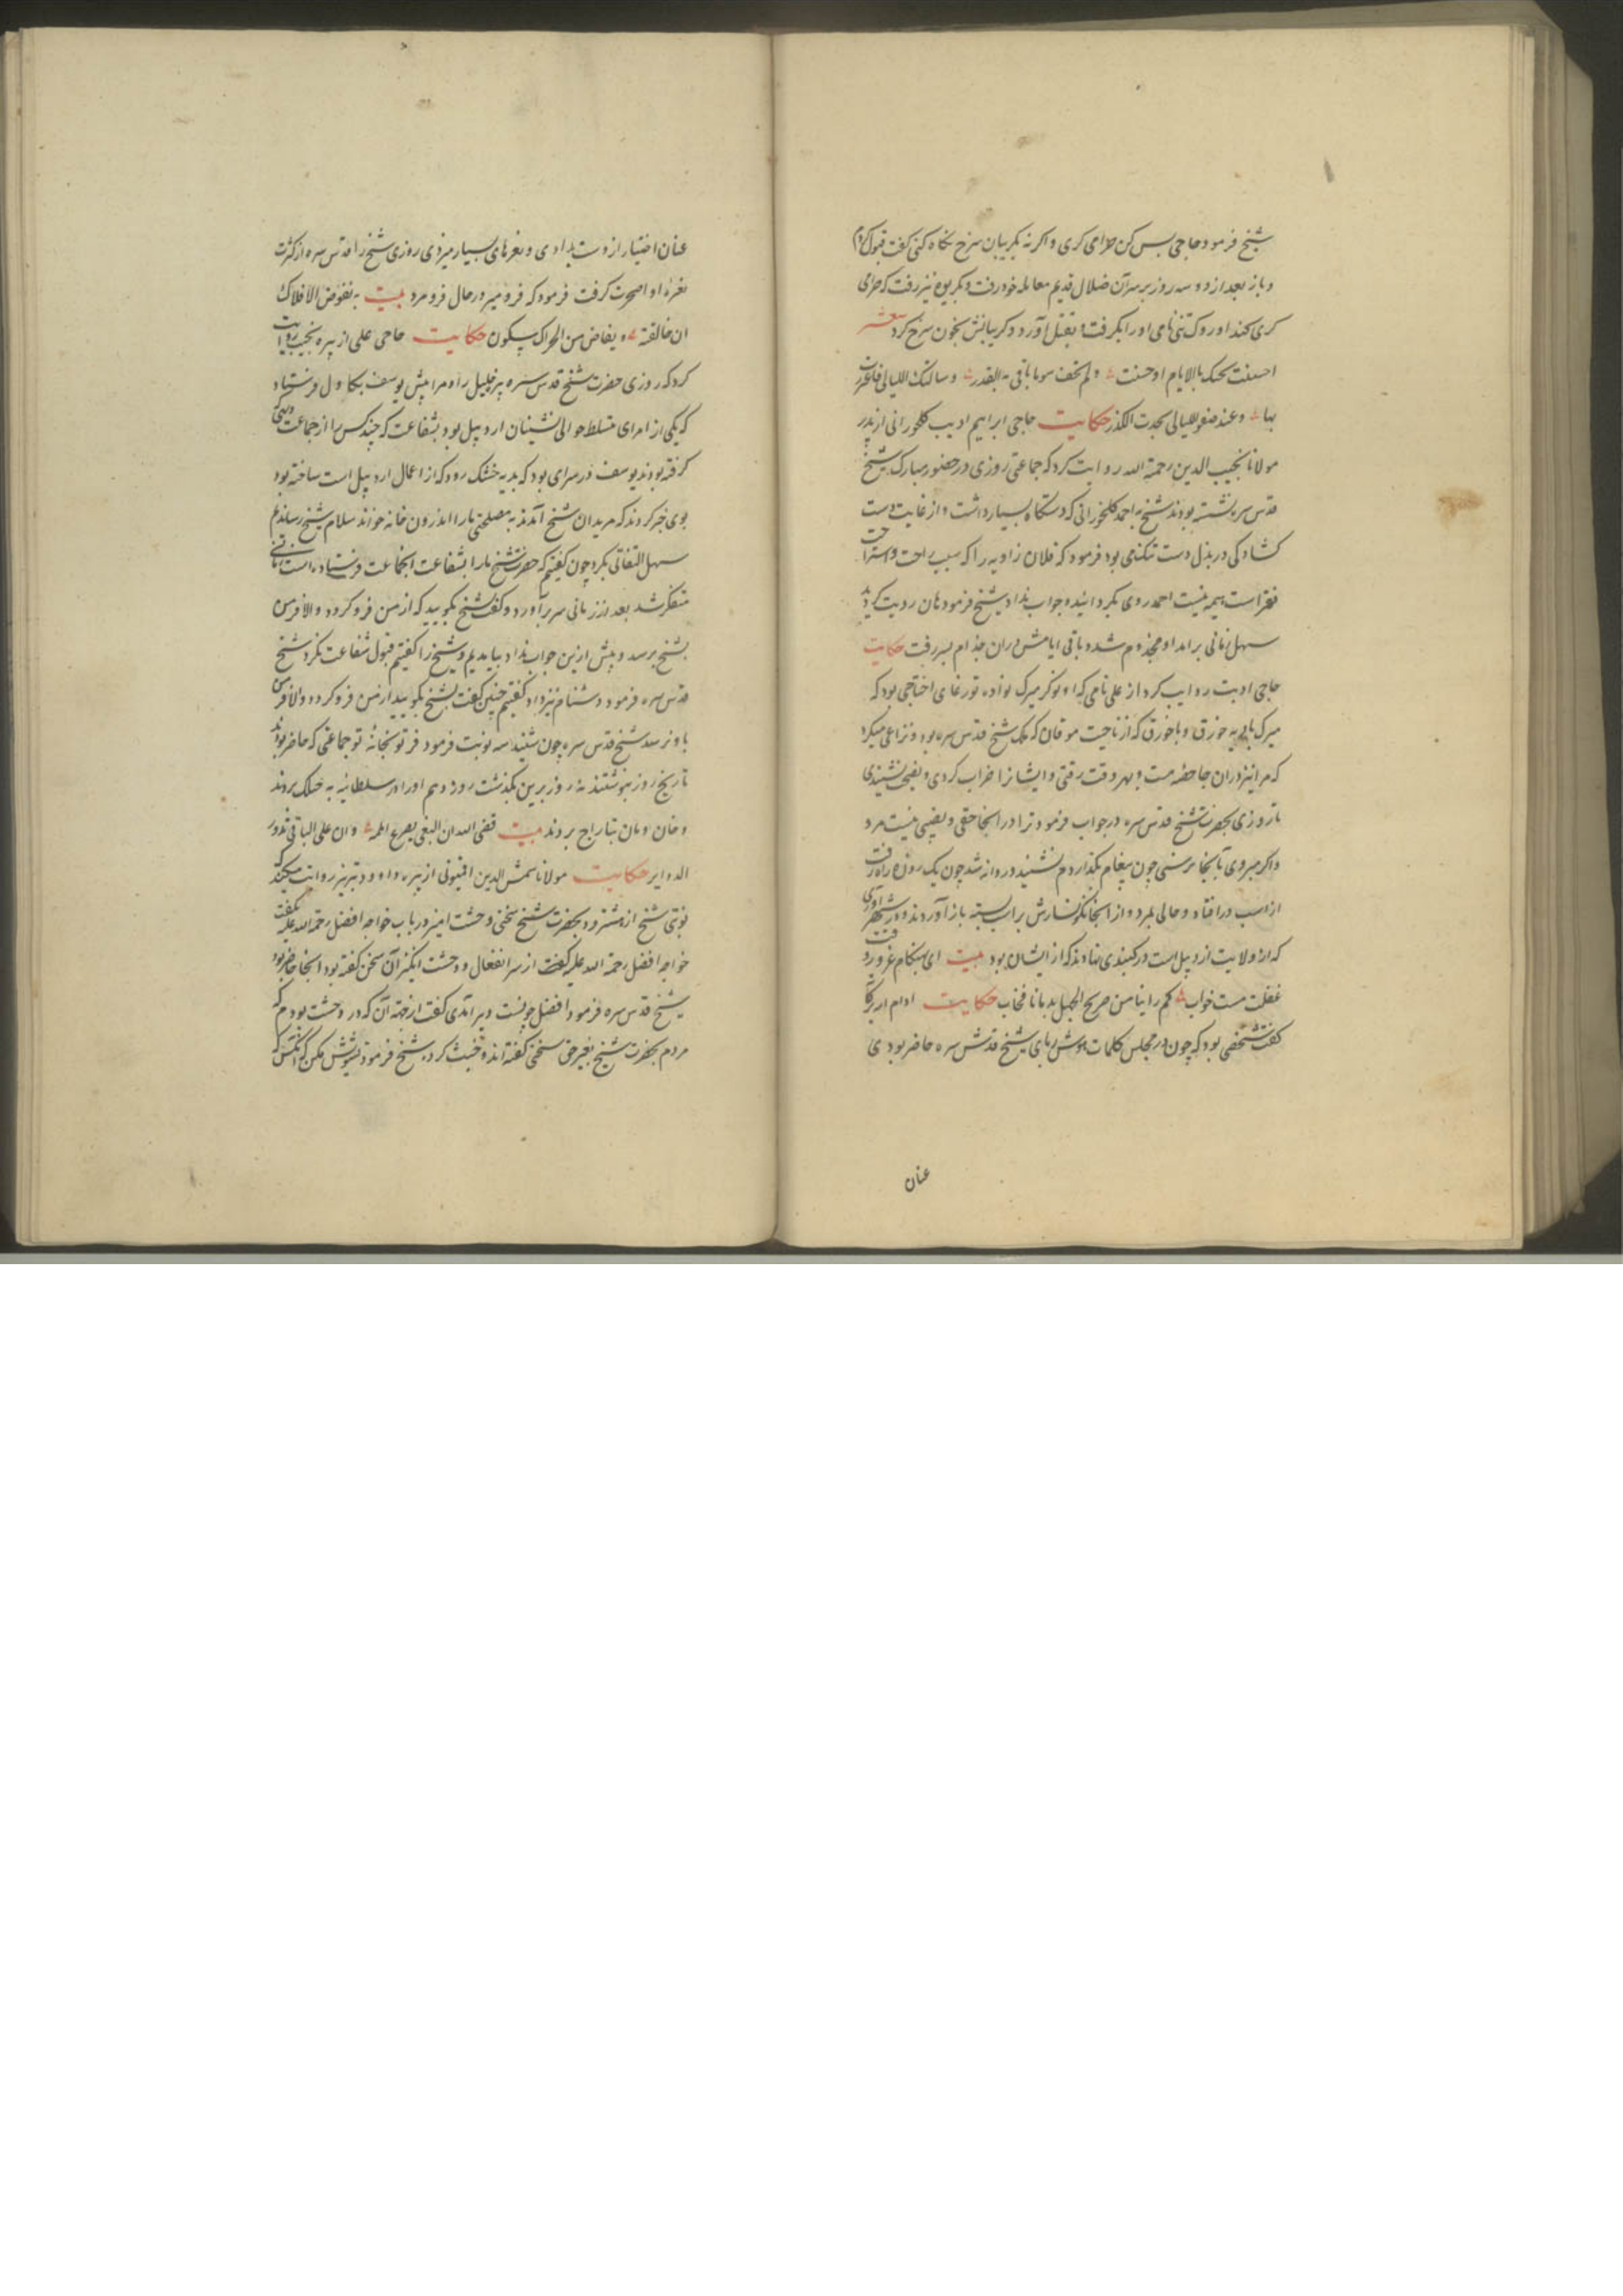 شیخ فرمود حاجی بس کن حرامی کری و اکر نه بکریبان سرخ نکاه کنی کفت قبول کردم
و باز بعد از دو سه روز بر سر آن ضلال قدیم معامله خود رفت و بکریوه نیز رفت که حرامی
کری کند اوروک تنی نامی او را بکرفت و بقتل آورد و کریبانش بخون سرخ کرد شعر
احسنت ظنک بالایام اذ حسنت و لم تخف سوء ما یاتی به القدر و سالمتک اللیالی فاغتررت
بها و عند صفو اللیالی یحدث الکدر حکایت حاجی ابراهیم ادیب کلخورانی از پدر
مولانا نجیب الدین رحمة الله روایت کرد که جماعتی روزی در حضور مبارک شیخ
قدس سره نشسته بودند شیخ به احمد کلخورانی که دستکاه بسیار داشت و از غایت دست
کشادکی در بذل دست تنکنامی بود فرمود که فلان زاویه را که سبب راحت و استراحت
فقرا است هیمه نیست احمد روی بکردانید و جواب نداد شیخ فرمود هان رویت کردید
سهل زمانی برآمد او مجذوم شد و باقی ایامش در ان جذام بسر رفت حکایت
حاجی ادیب روایت کرد از علی نامی که او نوکر میرک نواده تورغای اختاجی بود که
میرک بابی به خورق و باخورق که از ناحیت موقان که ملک شیخ قدس سره بود نزاعی میکرد
که مرا نیز در ان جا حصه هست و بهر وقت رفتی و ایشانرا خراب کردی و نصیحت نشنیدی
تا روزی بحضرت شیخ قدس سره در جواب فرمود ترا در انجا حقی و نصیبی نیست مرو
و اکر میروی تا بنجا نرسی چون پیغام بکذاردم نشنید و روانه شد چون یک روزه راه رفت
از اسب در افتاد و حالی بمرد و از انجا نکونسارش بر اسب بسته باز آوردند و در شهر اوری
که از ولایت اردبیل است در کنبدی نهادند که از ایشان بود بیت ای بهنکام غرور و
غفلت مست خواب کم راینا من صریح الجهل بد مانا فخاب حکایت ادام
کفت شخصی بود که چون در مجلس کلمات هوش ربای شیخ قدس سره حاضر بودی
عنان
عنان اختیار از دست بدادی و نعرهای بسیار میزدی روزی شیخ را قدس سره از کثرت
نعرهٔ او ضجرت کرفت فرمود که فرو میر در حال فرو مرد بیت به تفوض الافلاک
ان خالفته و یفاض من الحراک سکون حکایت حاجی علی از پیره نجیب روایت
کرد که روزی حضرت شیخ قدس سره پیر خلیل را و مرا پیش یوسف بکاول فرستاد
که یکی از امرای متسلط حوالی نشینان اردبیل بود بشفاعت که چند کس را از جماعت دیهی
کرفته بودند یوسف در سرای بود که بدیه خشک رود که از اعمال اردبیل است ساخته بود
بوی خبر کردند که مریدان شیخ آمدند به مصلحتی ما را اندرون خانه خواند سلام شیخ رساندیم
سهل التفاتی بکرد چون کفتیم که حضرت شیخ ما را بشفاعت انجماعت فرستاده است زمانی
متفکر شد بعد از زمانی سر برآورد و کفت شیخ بکویید که از من فرو کرود و الا فرمن
بشیخ برسد و پیش ازین جواب نداد بیامدیم و شیخ را کفتیم قبول شفاعت نکرد شیخ
قدس سره فرمود دشنام نیز داد کفتیم چنین کفت بشیخ بکویید از من فرو کردد و الا فر من
باو برسد شیخ قدس سره چون شنید سه نوبت فرمود فر تو بخانهٔ تو جماعتی که حاضر بودند
تاریخ روز بنوشتند نه روز برین بکذشت روز دهم او را در سلطانیه به خنک بردند
و خان و مان بتاراج بردند بیت قضی الله ان البغی یصرع اهله و ان علی الباقی تدور
الدوایر حکایت مولانا شمس الدین اقیونی از پیره داود تبریزی روایت میکند که
نوبتی شیخ از مشترود بحضرت شیخ سخنی وحشت امیز در باب خواجه افضل رحمة الله علیه بکفت
خواجه افضل رحمة الله علیه کفت از سر انفعال و وحشت انکیز آن سخن کفته بود انجا حاضر بود
شیخ قدس سره فرمود افضل چونست دیر آمدی کفت از جهة آن که در وحشت بودم که
مردم بحضرت شیخ بغیر حق سخنی کفته اند و غیبت کرده شیخ فرمود تشویش مکن که آنکس که